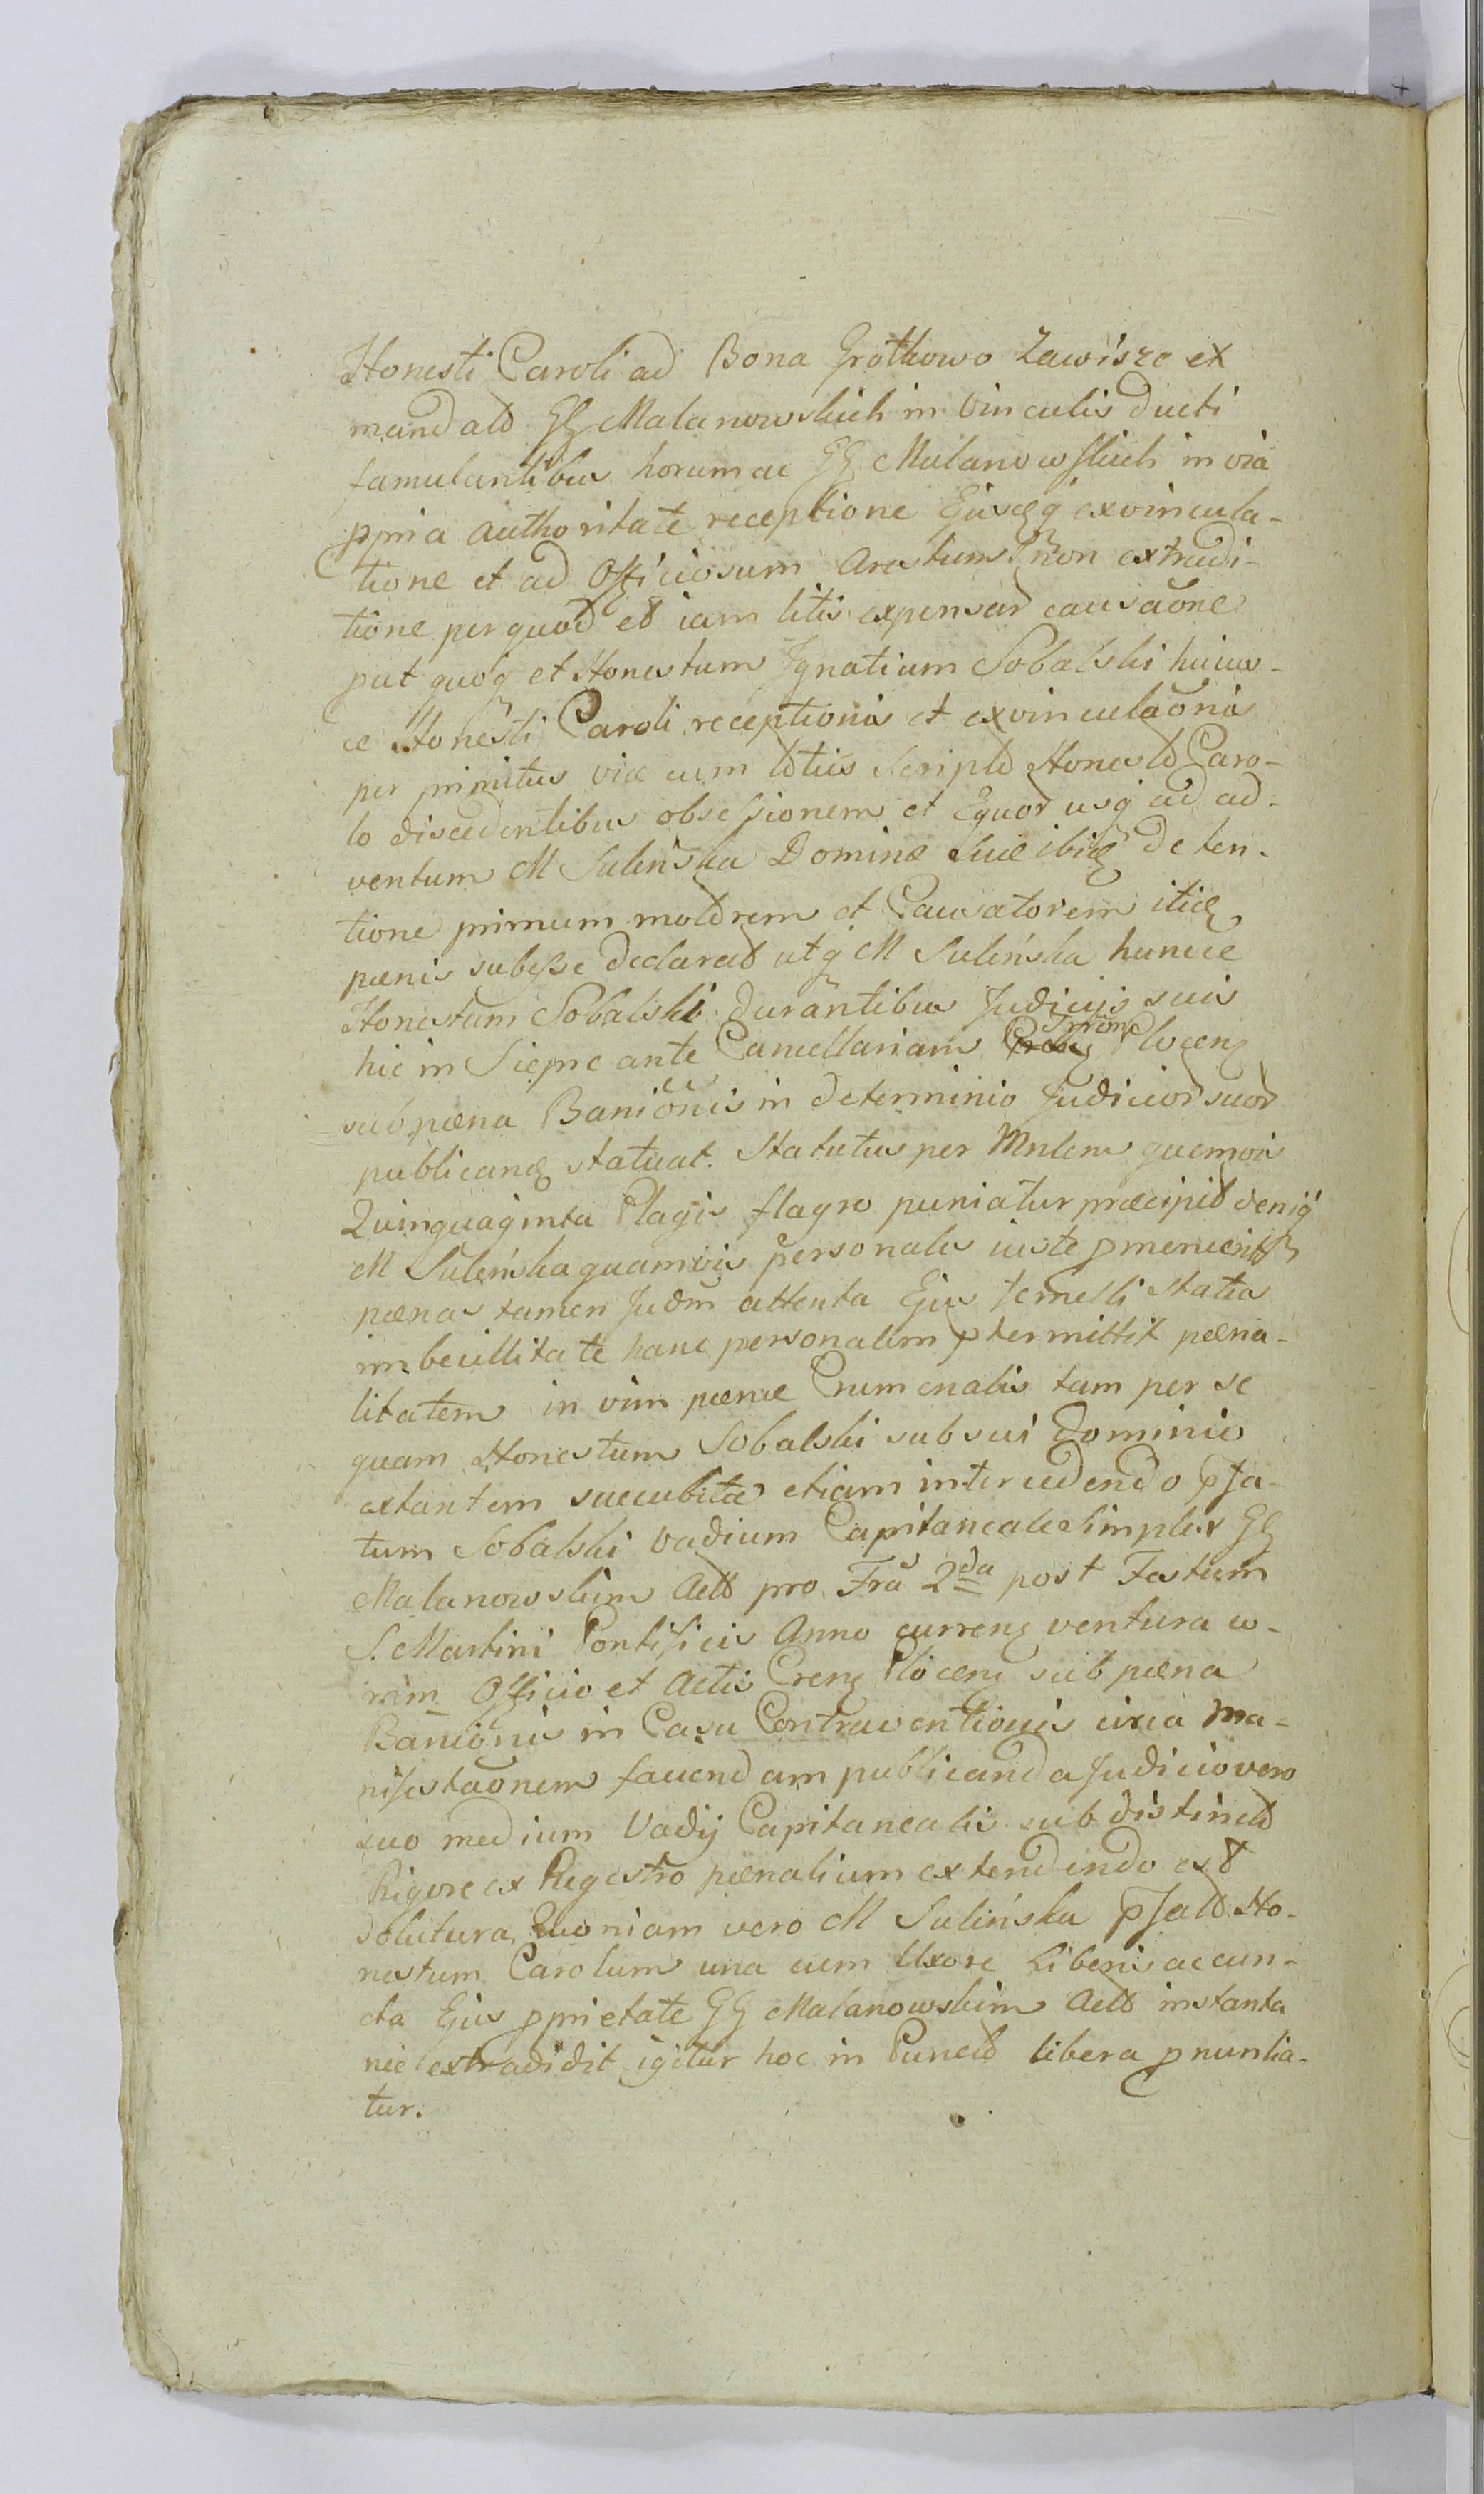 Honesti Caroli ad Bona Grotkowo Zawisze ex
mandato GG Malanowskich in vinculis ducti
famulantibus horum ac GG Malanowskich in via
ppria authoritate receptione Ejusdq exvincula-
tione et ad Officiosum Arestum non extradi-
tione per quod et iam litis expensar causaone
put quoq et Honestum Ignatium Sobalski huius-
ce Honesti Caroli receptionis et exvinculaonis
per primitus viæ cum toties scripto Honesto Caro-
lo discedentibus obsessionem et Equor usq ad ad-
ventum M Sulińska Dominæ suæ ibidē deten-
tione primum motorem et Causatorem itidē
pænis subesse declarat utq M Sulińska huncce
Honestum Sobalski durantibus Judicijs suis
hic in Sierpc ante Cancellariam Plocen
sub pæna Banionis in determinio Judicior suor
publicand statuat. Statutus per Mnlem quemvis
Quinquaginta Plagis flagro puniatur præcipit deniq
M Sulińska quamvis personales iuste pmeruerit
pænas tamen Judm attenta Ejus femelli status
imbecillitate hanc personalem prtermittit pæna-
litatem in vim pænæ Crimenalis tam per se
quam Honestum Sobalski sub sui Dominio
extantem succubitæ etiam intercedendo pfa-
tum Sobalski vadium Capitaneale simplex GG
Malanowskim Actō pro Fra 2da post Festum
S. Martini Pontificis Anno curren ventura co-
ram Officio et Actis Cren Plocen sub pæna
Banionis in Casu Contraventionis circa Ma-
nifestaonem faciendam publicanda Judicio vero
suo medium Vadij Capitanealis sub distincto
Rigore ex Regestro pænalium extendendo est
solutura, Quoniam vero M Sulińska pfato Ho-
nestum Carolum una cum Uxore Liberis ac cun-
cta Ejus pprietate GG Malanowskim Actō instanta
nie extradidit igitur hoc in Puncto libera pnuntia-
tur.